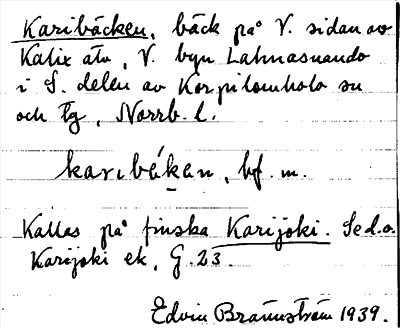 Karibäcken, bäck på V. sidan av
Kalix älv, V. byn Lahnasuando
i S. delen av Korpilombolo sn
och tg, Norrb. l.
karıbákan, bf. m.
Kallas på finska Karijoki. Se d.o.
Karijoki ek, G. 23.
Edvin Brännström 1939.